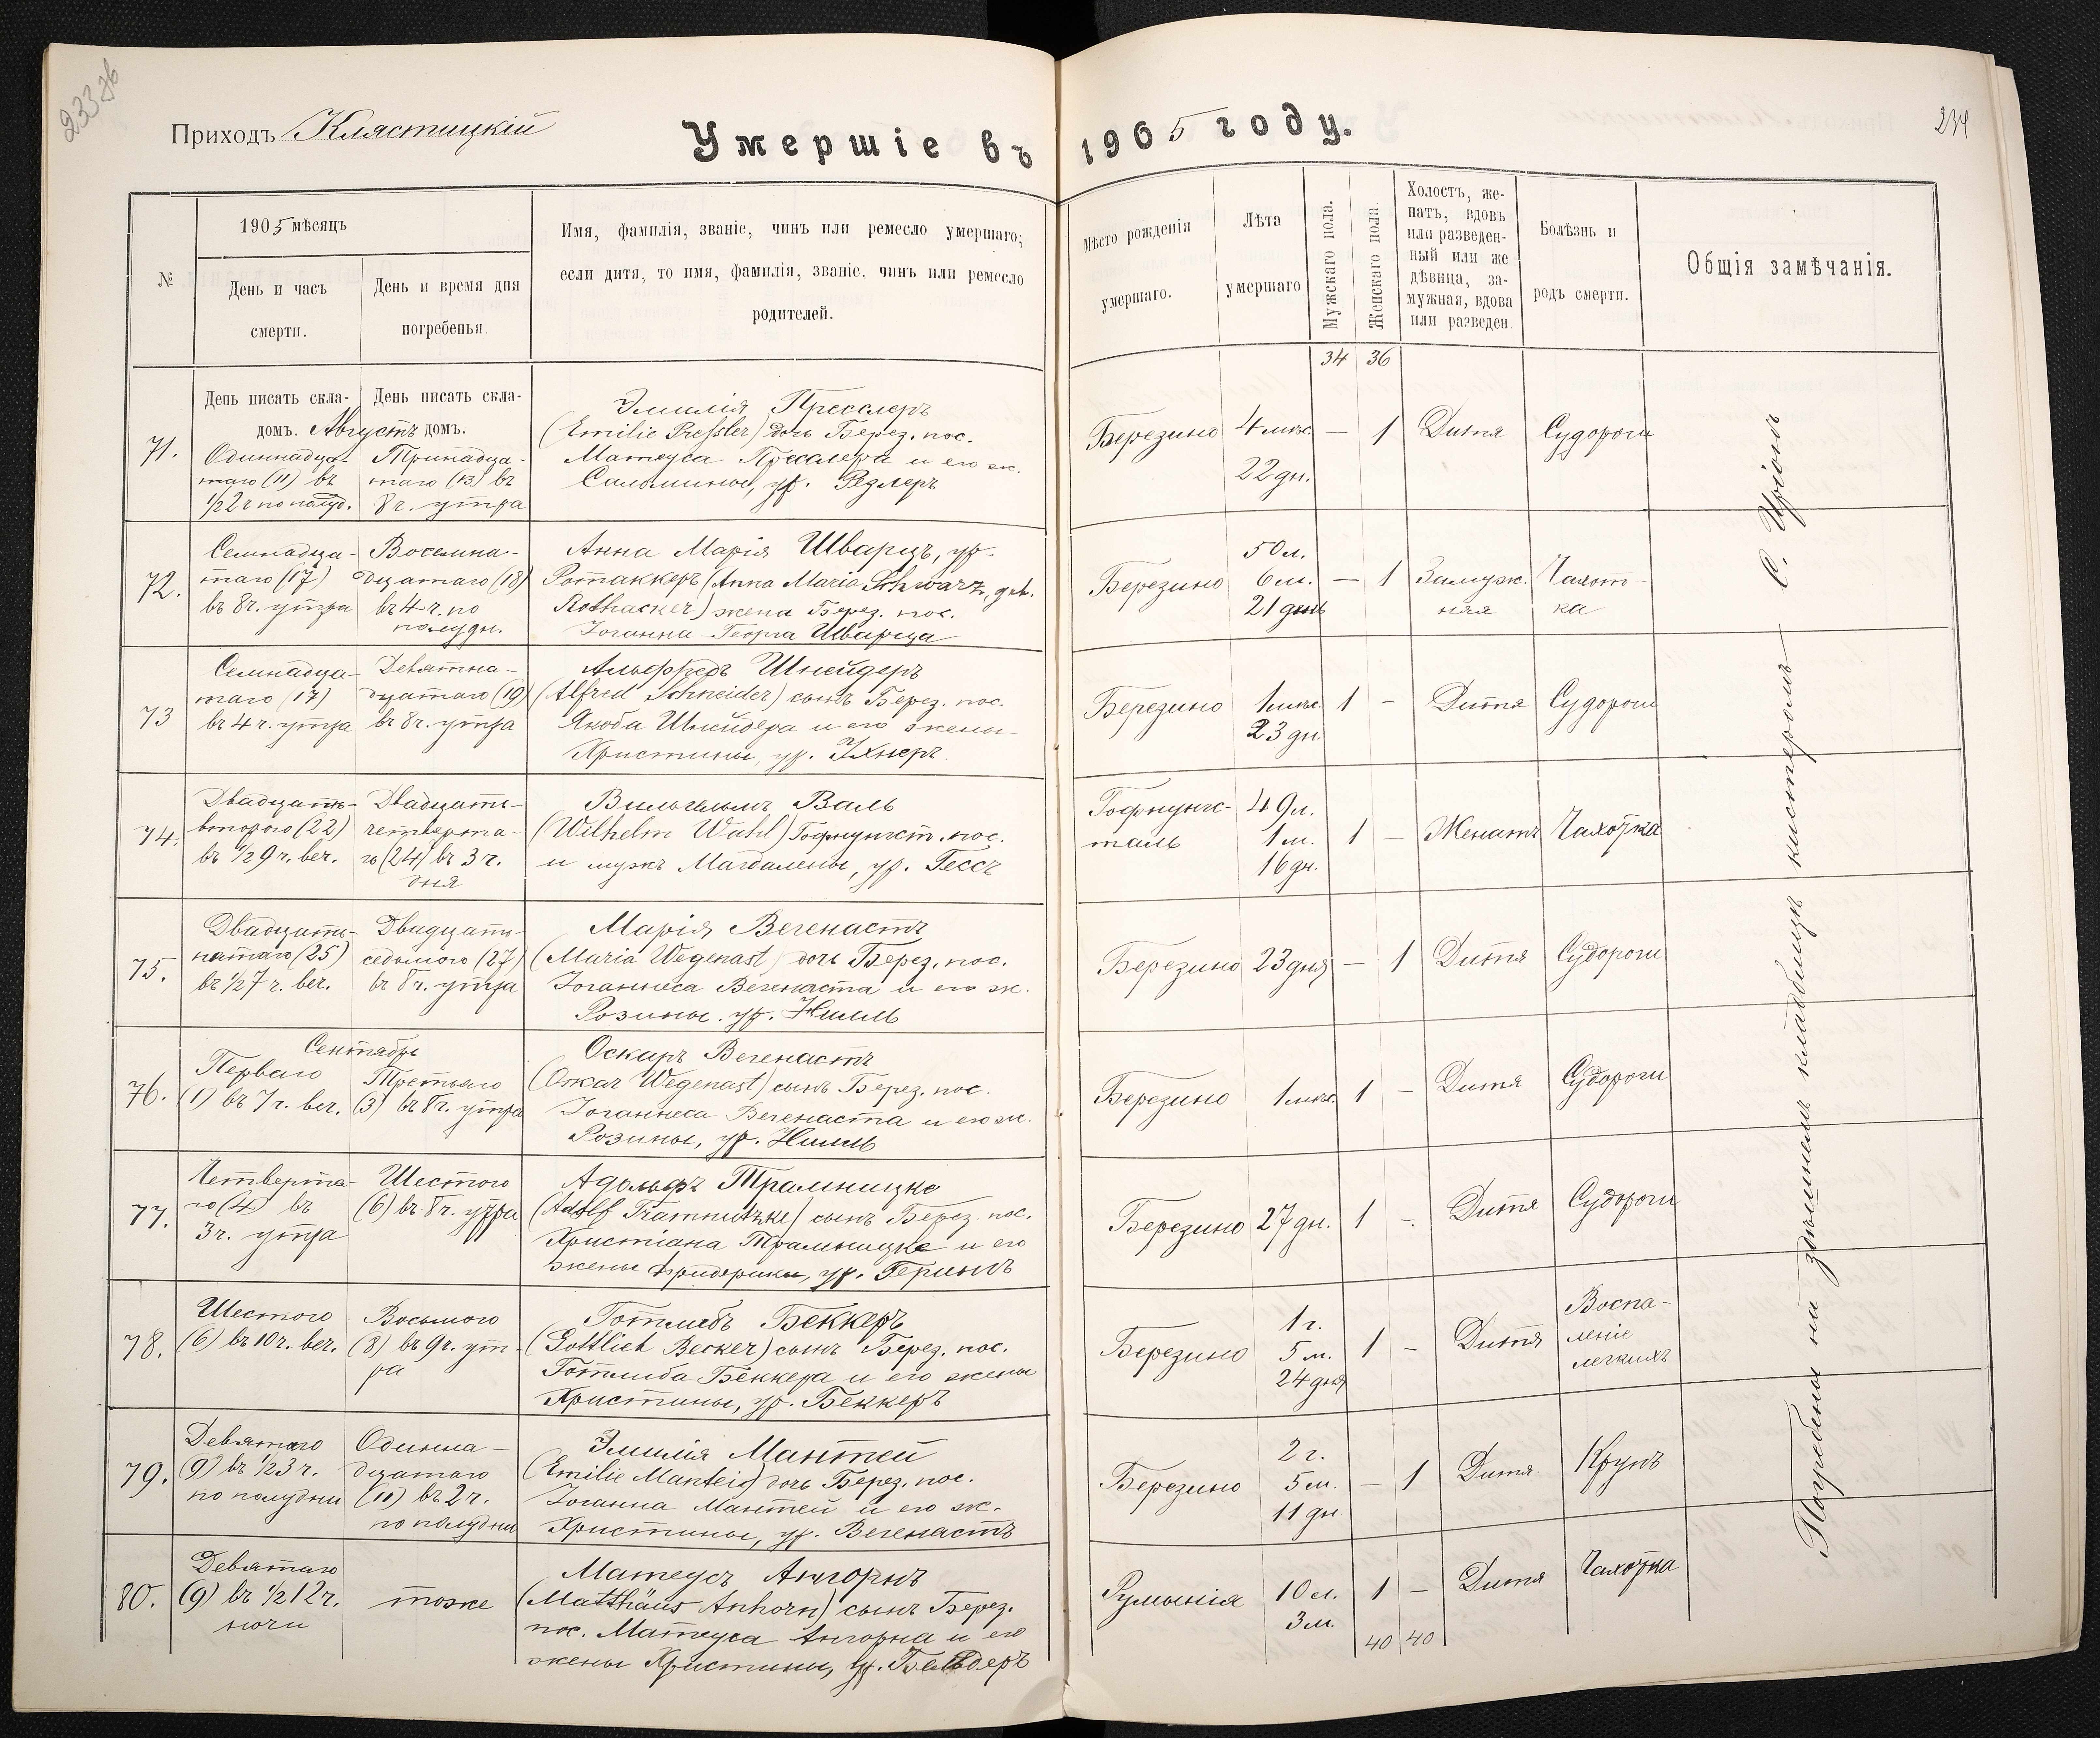 233 об
Приходъ Клястицкій
Умершіе въ 1905 году.
234
№
1905 мѣсяцъ
День и часъ
смерти.
День и время дня
погребенья.
Имя, фамилія, званіе, чинъ или ремесло умершаго;
если дитя, то имя, фамилія, званіе, чинъ или ремесло
родителей.
Мѣсто рожденія
умершаго.
Лѣта
умершаго
Мужскаго пола.
Женскаго пола.
Холостъ, же-
натъ, вдовъ
или разведен-
ный или же
дѣвица, за-
мужная, вдова
или разведен.
Болѣзнь и
родъ смерти.
Общія замѣчанія.
34 36
День писать скла-
домъ.
День писать скла-
домъ.
Августъ
71.
Одиннадца-
таго (11) въ
1/2 2 ч по полуд.
Тринадца-
таго (13) въ
8 ч. утра
Эмилія Пресслеръ
(Emilie Pressler) дочь Берез. пос.
Матеуса Пресслера и его ж.
Саломины, ур. Рёзлеръ
Березино
4 мѣс.
22 дн.
— 1
Дитя
Судороги
72.
Семнадца-
таго (17)
въ 8 ч. утра
Восемна-
дцатаго (18)
въ 4 ч. по
полудн.
Анна Марія Шварцъ, ур.
Ротаккеръ (Anna Maria Schwarz, geb.
Rothacker) жена Берез. пос.
Іоганна-Георга Шварца
Березино
50 л.
6 м.
21 день
— 1
Замуж-
няя
Чахот-
ка
73
Семнадца-
таго (17)
въ 4 ч. утра
Девятна-
дцатаго (19)
въ 8 ч. утра
Альфредъ Шнейдеръ
(Alfred Schneider) сынъ Берез. пос.
Якоба Шнейдера и его жены
Христины, ур. Эхнеръ
Березино
1 мѣс.
23 дн.
1 -
Дитя
Судороги
74.
Двадцать-
второго (22)
въ 1/2 9 ч. веч.
Двадцать-
четверта-
го (24) въ 3 ч.
дня
Вильгельмъ Валь
(Wilhelm Wahl) Гофнунгст. пос.
и мужъ Магдалены, ур. Гессъ
Гофнунгс-
таль
49 л.
1 м.
16 дн.
1 —
Женатъ
Чахотка
75.
Двадцать-
пятаго (25)
въ 1/2 7 ч. веч.
Двадцать-
седьмого (27)
въ 8 ч. утра
Марія Вегенастъ
(Maria Wegenast) дочь Берез. пос.
Іоганнеса Вегенаста и его ж.
Розины. ур. Нилль
Березино
23 дня
— 1
Дитя
Судороги
Сентябрь
76.
Перваго
(1) въ 7 ч. веч.
Третьяго
(3) въ 8 ч. утра
Оскаръ Вегенастъ
(Oskar Wegenast) сынъ Берез. пос.
Іоганнеса Вегенаста и его ж.
Розины, ур. Нилль
Березино
1 мѣс.
1 -
Дитя
Судороги
77.
Четверта-
го (4) въ
3 ч. утра
Шестого
(6) въ 8 ч. утра
Адольфъ Трамницке
(Adolf Tramnitzke) сынъ Берез. пос.
Христіана Трамницке и его
жены Фридерики, ур.
Березино
27 дн.
1 -
Дитя
Судороги
78.
Шестого
(6) въ 10 ч. веч.
Восьмого
(8) въ 9 ч. ут-
ра
Готлибъ Беккеръ
(Gottlieb Becker) сынъ Берез. пос.
Готлиба Беккера и его жены
Христины, ур. Беккеръ
Березино
1 г.
5 м.
24 дня
1 -
Дитя
Воспа-
леніе
легкихъ
79.
Девятаго
(9) въ 1/2 3 ч.
по полудни
Одинна-
дцатаго
(11) въ 2 ч.
по полудни
Эмилія Мантей
(Emilie Manteig) дочь Берез. пос.
Іоганна Мантей и его ж.
Христины, ур. Вегенастъ
Березино
2 г.
5 м.
11 дн
— 1
Дитя
Крупъ
80.
Девятаго
(9) въ 1/2 12 ч.
ночи
тоже
Матеусъ Ангорнъ
(Matthäus Anhorn) сынъ Берез.
пос. Матеуса Ангорна и его
жены Христины, ур.
Румынія
10 л.
3 м.
1 —
Дитя
Чахотка
40 40
Погребены на здѣшнемъ кладбищѣ кистеромъ С. Иріонъ